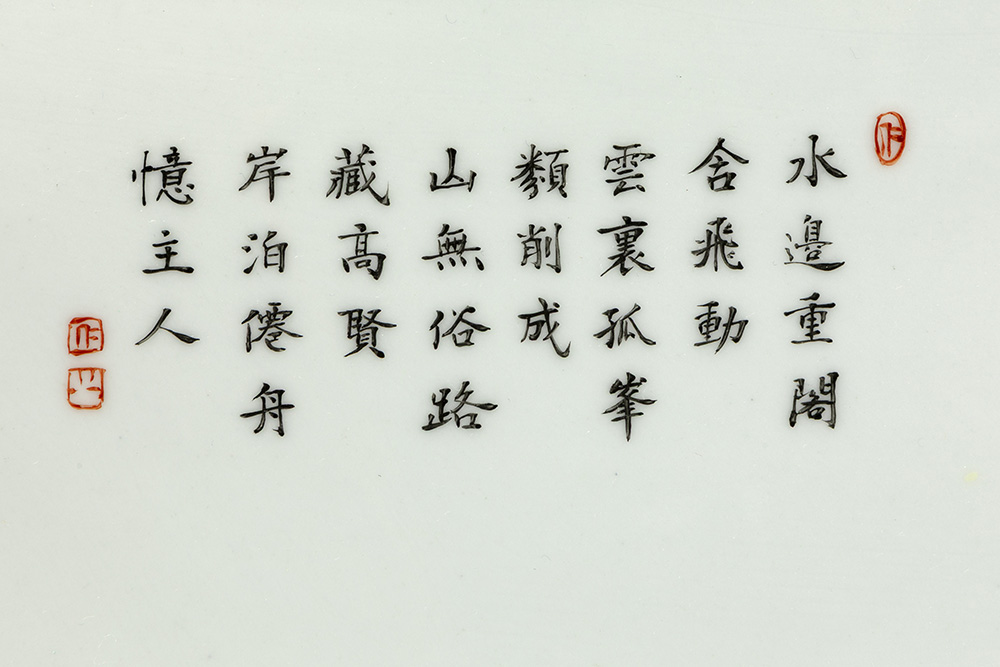 水邊重閣
舍飛動
雲裏孤峯
類削成
山無俗路
藏高賢
岸泊僊舟
憶主人